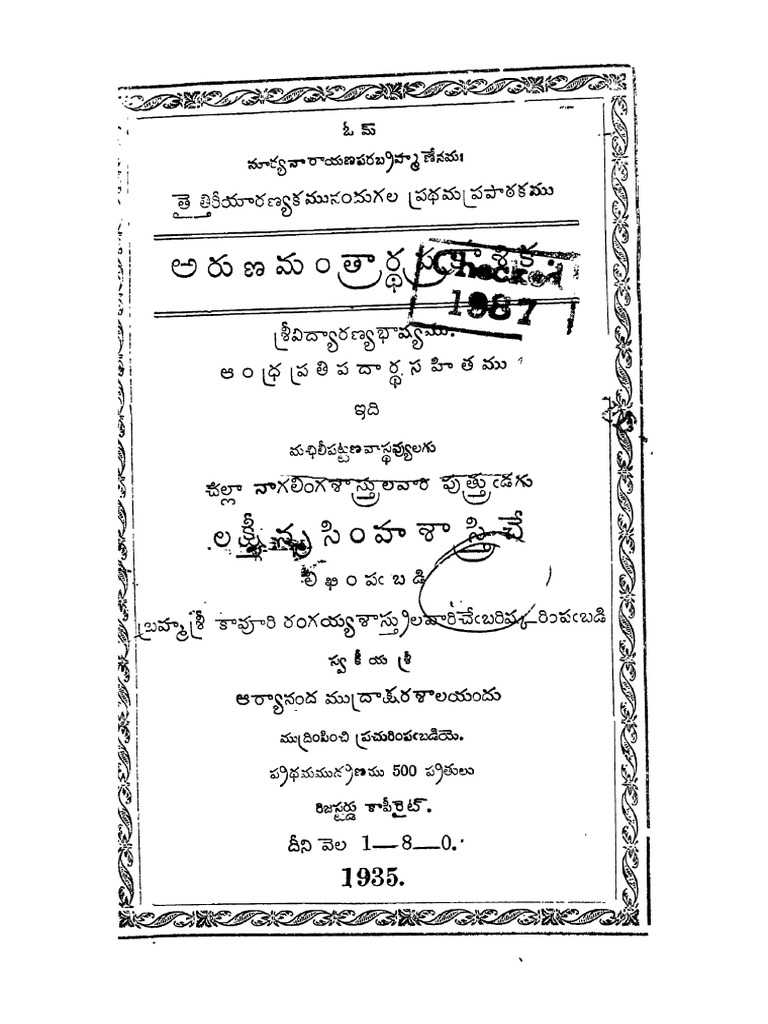 ఓమ్
సూర్యనారాయణపరబ్రహ్మణేనమః
తైత్తిరీయారణ్యకమునందుగల ప్రథమప్రపాఠకము
అరుణమంత్రార్థప్రకాశిక
Checked
1987
శ్రీవిద్యారణ్యభాష్యము.
ఆంధ్రప్రతిపదార్థసహితము
ఇది
మచిలీపట్టణవాస్తవ్యులగు
చల్లా నాగలింగశాస్త్రులవారి పుత్త్రుఁడగు
లక్ష్మీనృసింహశాస్త్రిచే
లిఖింపఁబడి
బ్రహ్మశ్రీ కావూరి రంగయ్యశాస్త్రులవారిచేఁబరిష్కరింపఁబడి
స్వకీయశ్రీ
ఆర్యానంద ముద్రాక్షరశాలయందు
ముద్రించి ప్రచురింపఁబడియె.
ప్రథమముద్రణము 500 ప్రతులు
రిజస్టర్డు కాపీరైట్.
దీని వెల 1—8—0.
1935.